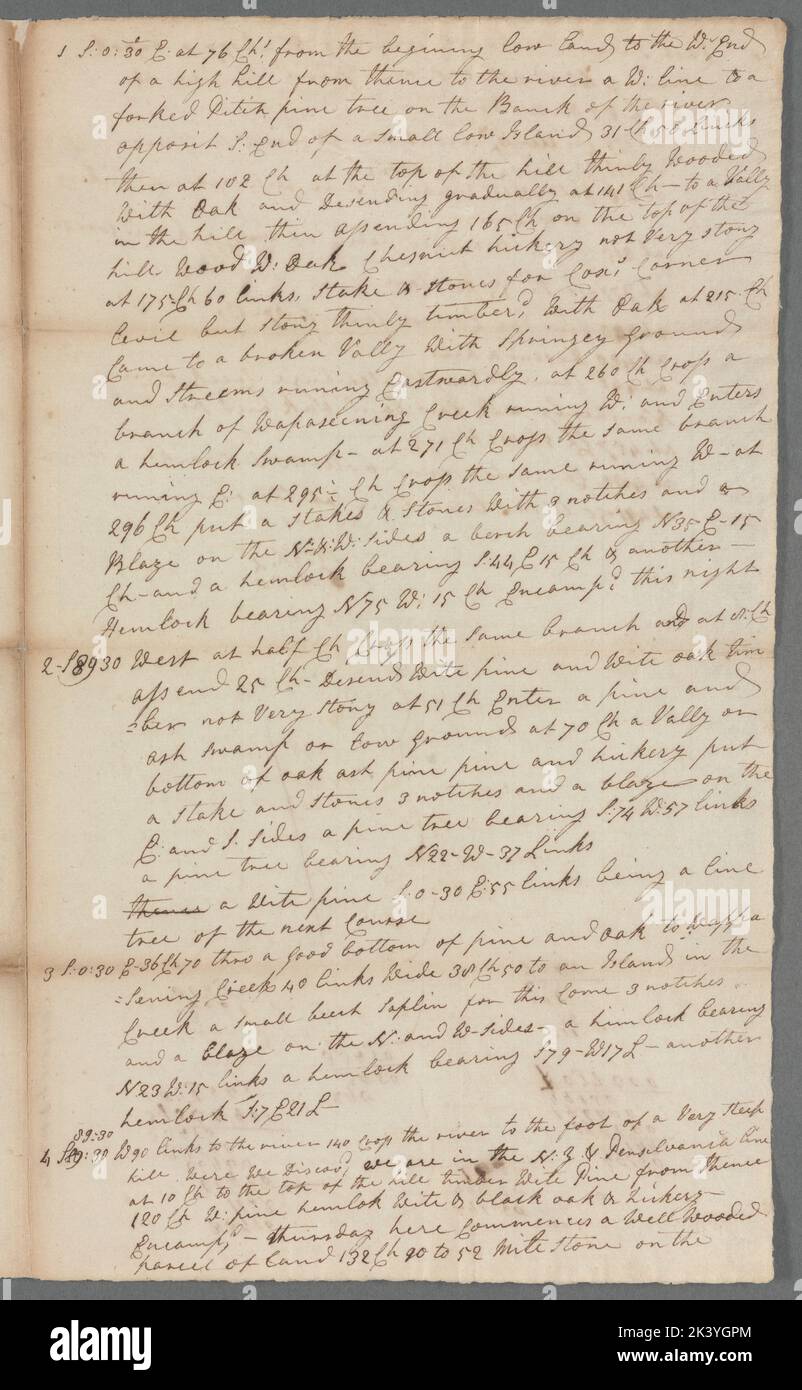 1 S: 0: 30 E. at 76 Ch: from the begining low land to the W: End
of a high hill from thence to the river a W: line to a
forked Pitch pine tree on the Banck of the river
opposit S: End of a small low Island 31 Ch 50 Lincks
then at 102 Ch at the top of the hill thinly Wooded
With Oak and Desending gradually at 141 Ch – to a Vally
in the hill then assending 165 Ch on the top of the
hill Wood W: Oak Chesnut hickery not Very stony
at 175 Ch 60 links, Stake & Stones for Cox's Corner
Levil but stony thinly timber'd With Oak at 215 Ch
Came to a broken Vally With Springey ground
and Streems runing Eastwardly, at 260 Ch Cross a
branch of Wapaseening Creek runing W: and Enters
a hemlock Swamp – at 271 Ch Cross the same branch
runing E: at 295 Ch Cross the same runing W – at
296 Ch put a Stakes & Stones With 3 notches and a
Blaze on the N: & W: Sides a berch bearing N35 E – 15
Ch – and a hemlock bearing S: 44 E 15 Ch & another –
Hemlock bearing N75 W: 15 Ch Encamp'd this night
2 – S 89 30 West at half Ch Cross the same branch and at 8: Ch
assend 25 Ch – Desend Wite pine and Wite oak tim
=ber not Very Stony at 51 Ch Enter a pine and
ash Swamp or low ground at 70 Ch a Vally or
bottom of oak ash pine pine and hickery put
a Stake and Stones 3 notches and a blaze on the
E: and S. Sides a pine tree bearing S: 74 W: 57 links
a pine tree bearing N22 – W – 37 Links
thence a Wite pine S: 0 – 30 E: 55 links being a line
tree of the next Course
3 S: 0: 30 E – 36 Ch 70 thro a good bottom of pine and oak to Wappa
=Sening Creek 40 links Wide 38 Ch 50 to an Island in the
Creek a small beech Saplin for this Corne 3 notches
and a blaze on the N: and W – Sides – a himlock bearing
N23 W: 15 links a hemlock bearing S79 – W17 L – another
hemlock S: 7 E 21 L –
89 : 30
4 S 89 : 30 W 90 links to the river 140 Cross the river to the foot of a Very Steep
hill Were We Discov'd we are in the N: Y & Pensilvania line
at 10 Ch to the top of the hill timber Wite Pine from thence
120 Ch W: pine hemlok Wite & black oak & hickery –
Encamp'd – thursday here Commences a Well Wooded
parcel of Land 132 Ch 90 to 52 Mile Stone on the
alamy
alamy
alamy
Image ID: 2K3YGPM
www.alamy.com